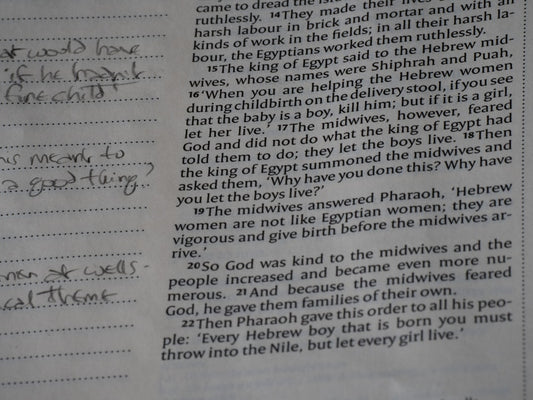 at would have
if he hadn't
fine child!
meant to
a good thing?
at wells -
cal theme
came to dread the
ruthlessly. 14They made their lives
harsh labour in brick and mortar and with all
kinds of work in the fields; in all their harsh la-
bour, the Egyptians worked them ruthlessly.
15The king of Egypt said to the Hebrew mid-
wives, whose names were Shiphrah and Puah,
16'When you are helping the Hebrew women
during childbirth on the delivery stool, if you see
that the baby is a boy, kill him; but if it is a girl,
let her live.' 17The midwives, however, feared
God and did not do what the king of Egypt had
told them to do; they let the boys live. 18Then
the king of Egypt summoned the midwives and
asked them, 'Why have you done this? Why have
you let the boys live?'
19The midwives answered Pharaoh, 'Hebrew
women are not like Egyptian women; they are
vigorous and give birth before the midwives ar-
rive.'
20So God was kind to the midwives and the
people increased and became even more nu-
merous. 21And because the midwives feared
God, he gave them families of their own.
22Then Pharaoh gave this order to all his peo-
ple: 'Every Hebrew boy that is born you must
throw into the Nile, but let every girl live.'